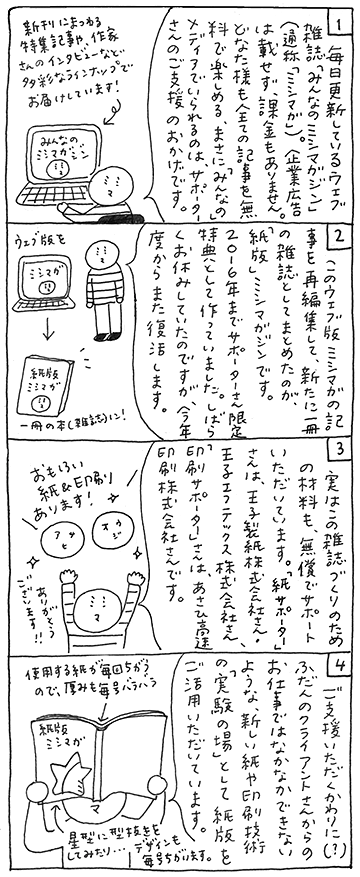 1
毎日更新しているウェブ
雑誌「みんなのミシマガジン」
(通称「ミシマガ」)。企業広告
は載せず、課金もありません。
どなた様も全ての記事を無
料で楽しめる、まさに「みんなの」
メディアでいられるのは、サポーター
さんのご支援のおかげです。
新刊にまつわる
特集記事や、作家
さんのインタビューなど
多彩なラインナップで
お届けしています!
みんなの
ミシマガジン
ミ
マ
2
このウェブ版ミシマガの記
事を再編集して、新たに一冊
の雑誌としてまとめたのが、
「紙版」ミシマガジンです。
2016年までサポーターさん限定
特典として作っていました。しばら
くお休みしていたのですが、今年
度からまた復活します。
ウェブ版を
ミシマガ
紙版
ミシマガ
一冊の本(雑誌)に!
3
実はこの雑誌づくりのため
の材料も、無償でサポート
いただいています。「紙サポーター」
さんは、王子製紙株式会社さん・
王子エフテックス株式会社さん、
「印刷サポーター」さんは、あさひ高速
印刷株式会社さんです。
おもろい
紙&印刷
あります!
オウジ
アサヒ
ミ
マ
ありがとう
ございます!!
4
ご支援いただくかわりに(?)
ふだんのクライアントさんからの
お仕事ではなかなかできない
ような、新しい紙や印刷技術
の「実験の場」として紙版を
ご活用いただいています。
使用する紙が毎回ちがう
ので、厚みも毎号バラバラ
紙版
ミシマガ
マ
星型に型抜きを
してみたり…
デザインも
毎号ちがいます。